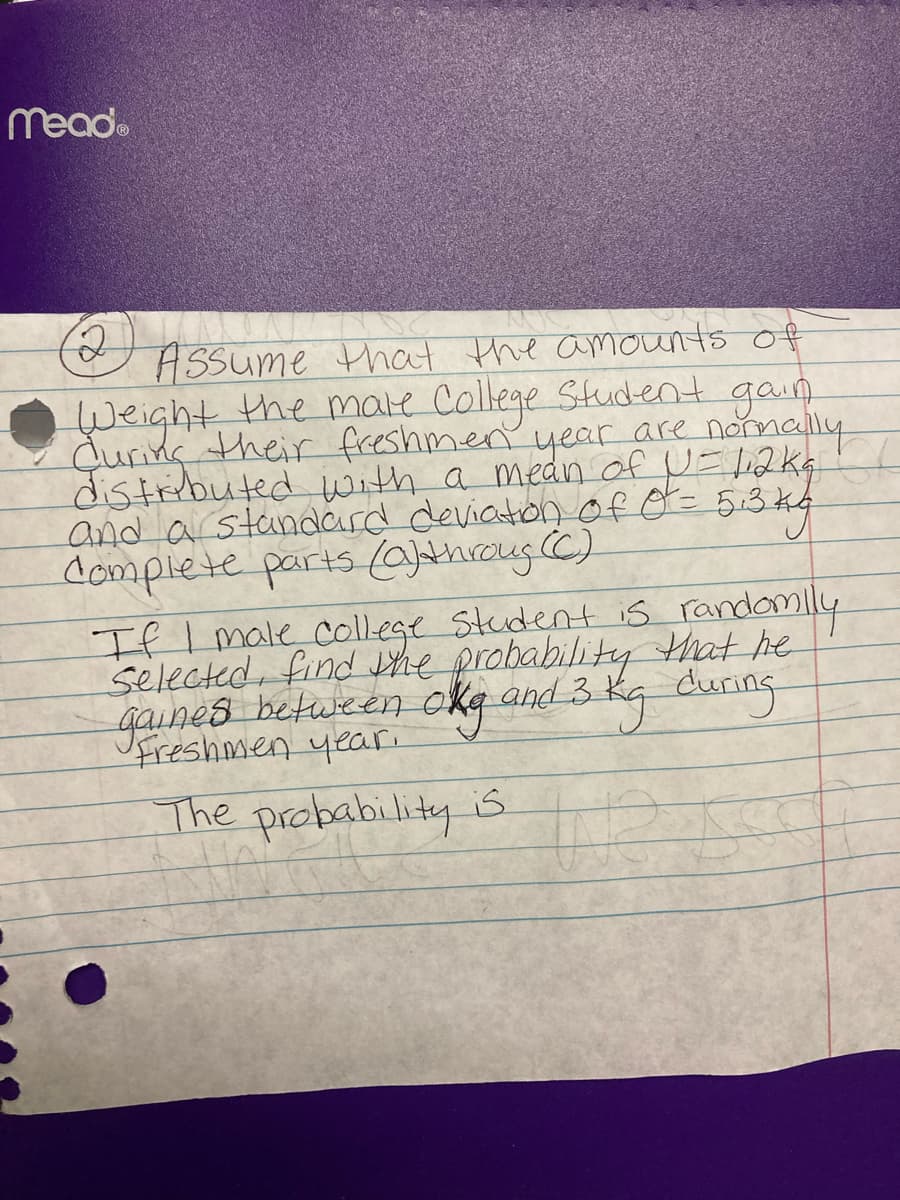 Mead®
② Assume that the amounts of
Weight the male College Student gain
During their freshmen year are normally
distributed with a mean of μ = 1.2 kg
and a standard deviation of σ = 5.3 kg
Complete parts (a) throug (C)
If 1 male college Student is randomlly
Selected, find the probability that he
gaines between 0kg and 3 Kg during
Freshmen year.
The probability is